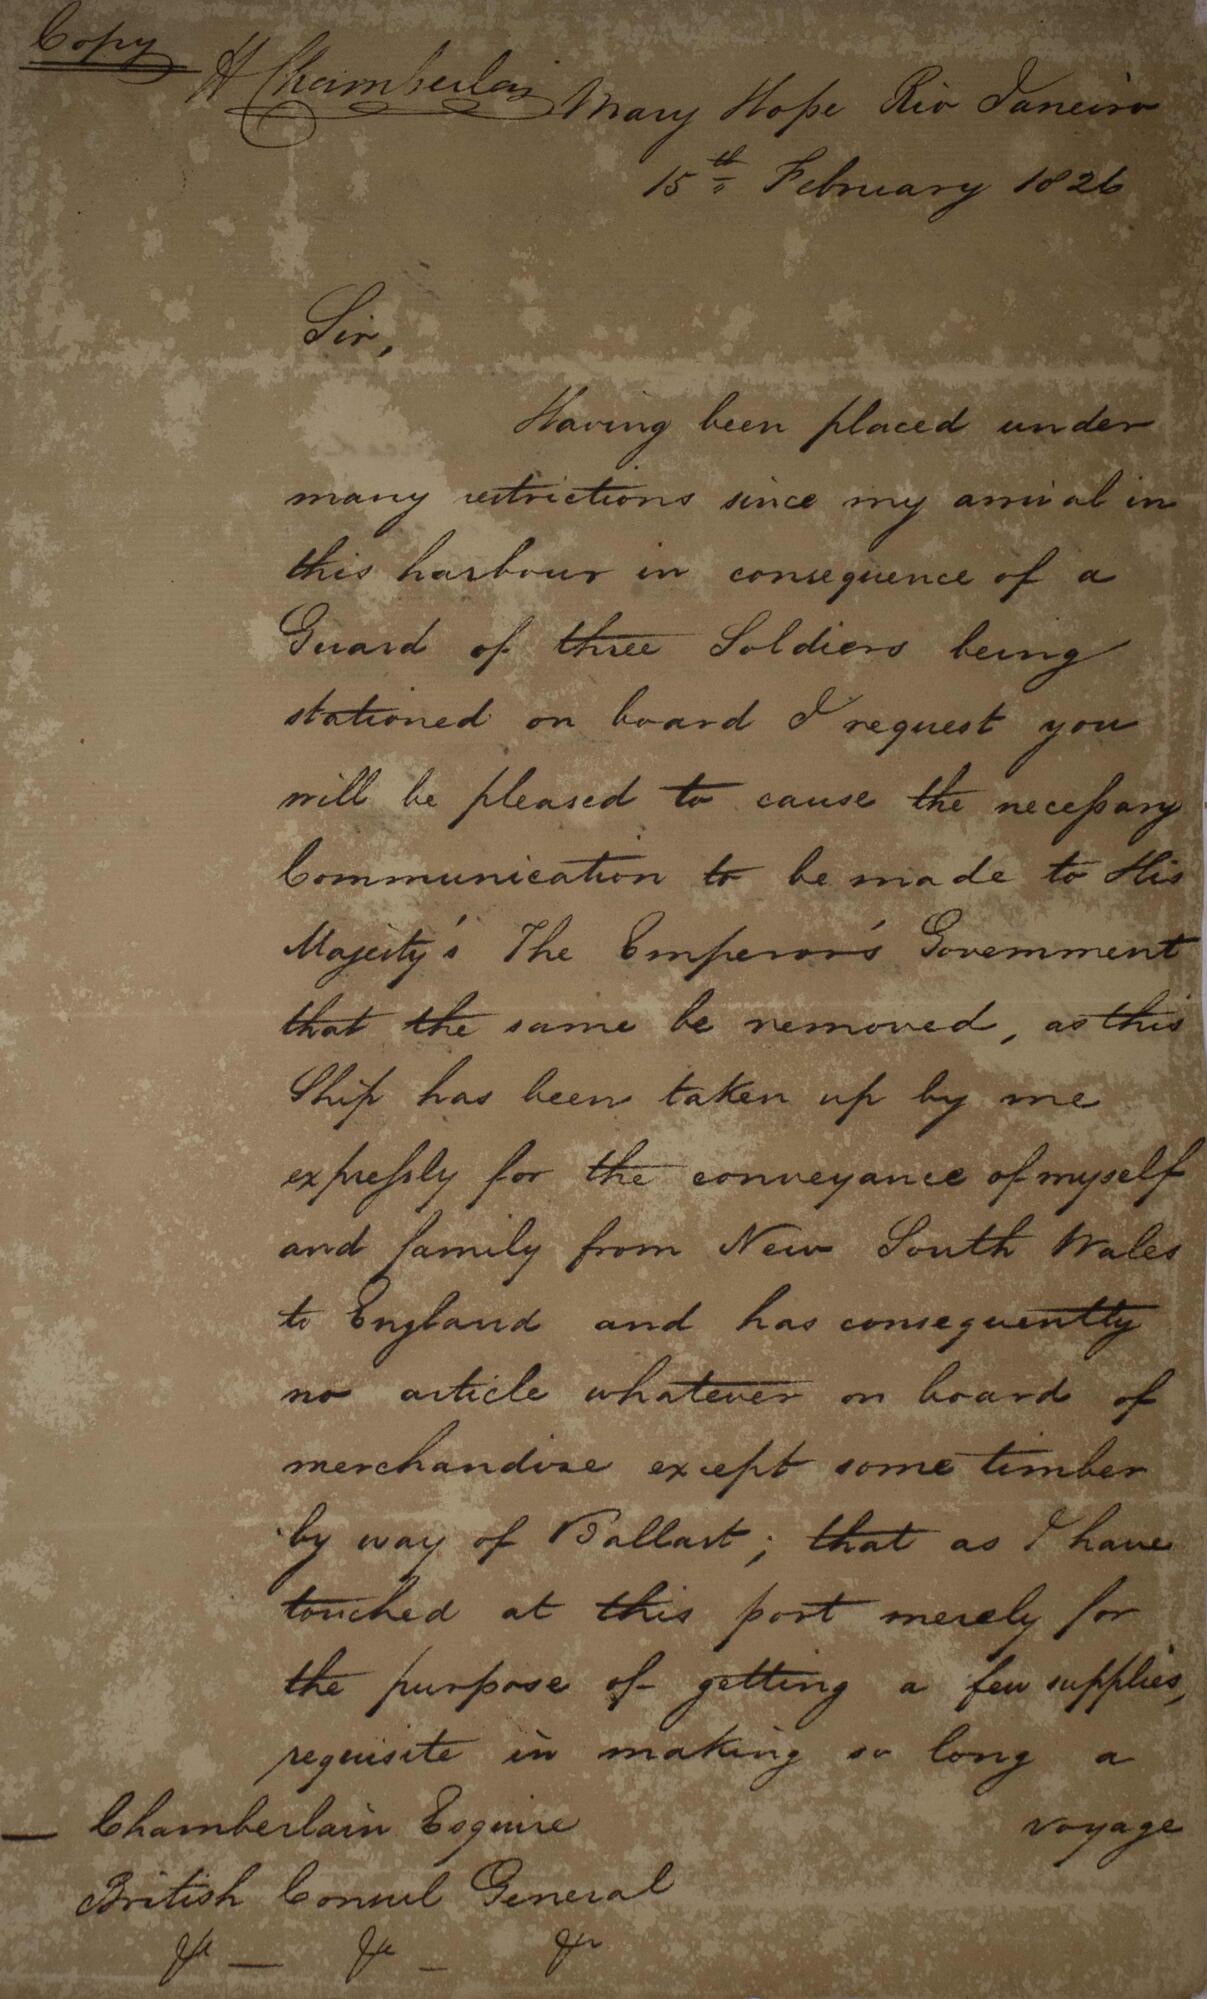 Copy
H Chamberlain
Mary Hope Rio Janeiro
15th February 1826
Sir,
Having been placed under
many restrictions since my arrival in
this harbour in consequence of a
Guard of three Soldiers being
stationed on board I request you
will be pleased to cause the necessary
Communication to be made to His
Majesty's The Emperor's Government
that the same be removed, as this
Ship has been taken up by me
expressly for the conveyance of myself
and family from New South Wales
to England and has consequently
no article whatever on board of
merchandize except some timber
by way of Ballast; that as I have
touched at this port merely for
the purpose of getting a few supplies,
requisite in making so long a
voyage
— Chamberlain Esquire
British Consul General
&c — &c — &c